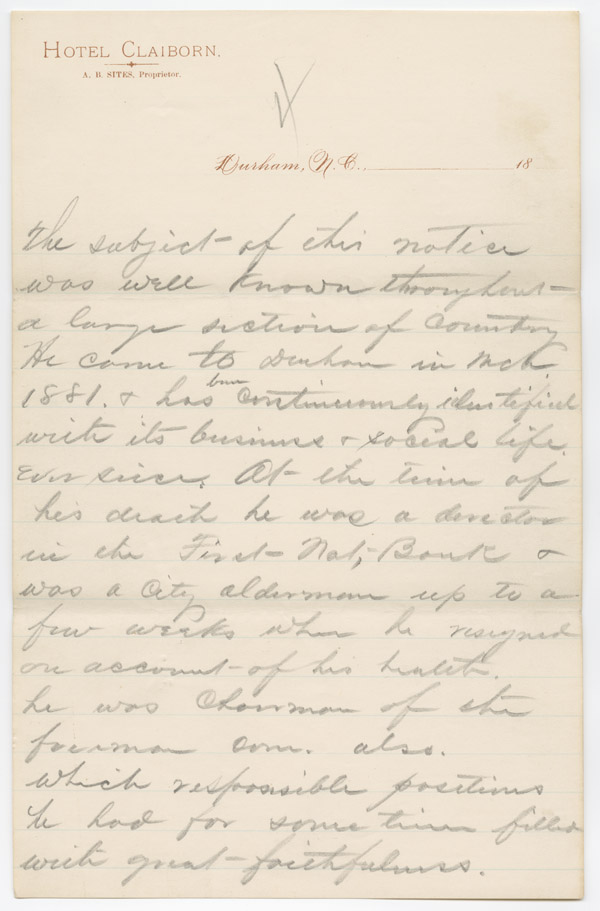 HOTEL CLAIBORN.
A. B. SITES, Proprietor.
Durham, N. C. 18
The subject of this notice
was well known throughout
a large section of country
He came to Durham in Mch
1881. & has been continuously identified
with its business & social life
ever since. At the time of
his death he was a director
in the First Nat, Bank &
was a City alderman up to a
few weeks when he resigned
on account of his health.
he was Chairman of the
fireman com. also.
which responsible positions
he had for some time filled
with great faithfulness.